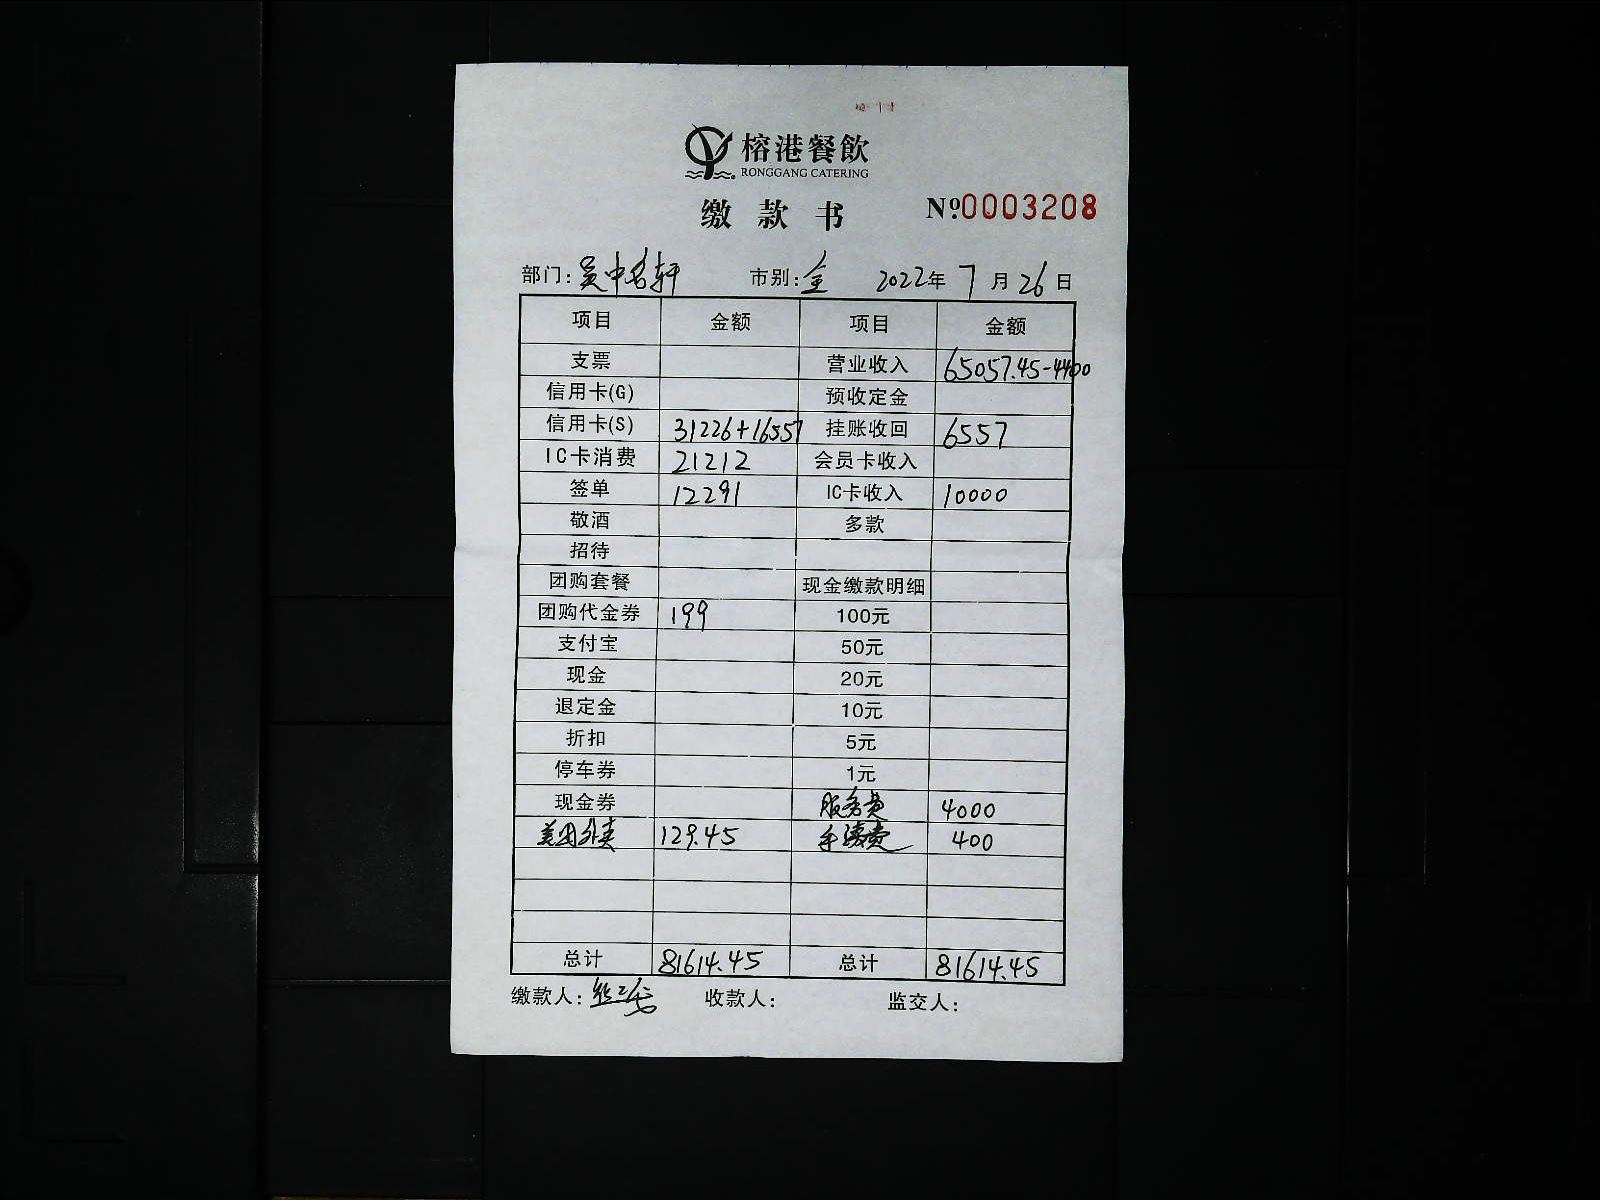 榕港餐飲
RONGGANG CATERING
缴款书 №0003208
部门：吴中名轩 市别：全 2022年7月26日
项目 金额 项目 金额
支票 营业收入 65057.45-4400
信用卡(G) 预收定金
信用卡(S) 31226+16557 挂账收回 6557
IC卡消费 21212 会员卡收入
签单 12291 IC卡收入 10000
敬酒 多款
招待
团购套餐 现金缴款明细
团购代金券 199 100元
支付宝 50元
现金 20元
退定金 10元
折扣 5元
停车券 1元
现金券 服务费 4000
美团外卖 129.45 手续费 400
总计 81614.45 总计 81614.45
缴款人： 收款人： 监交人：